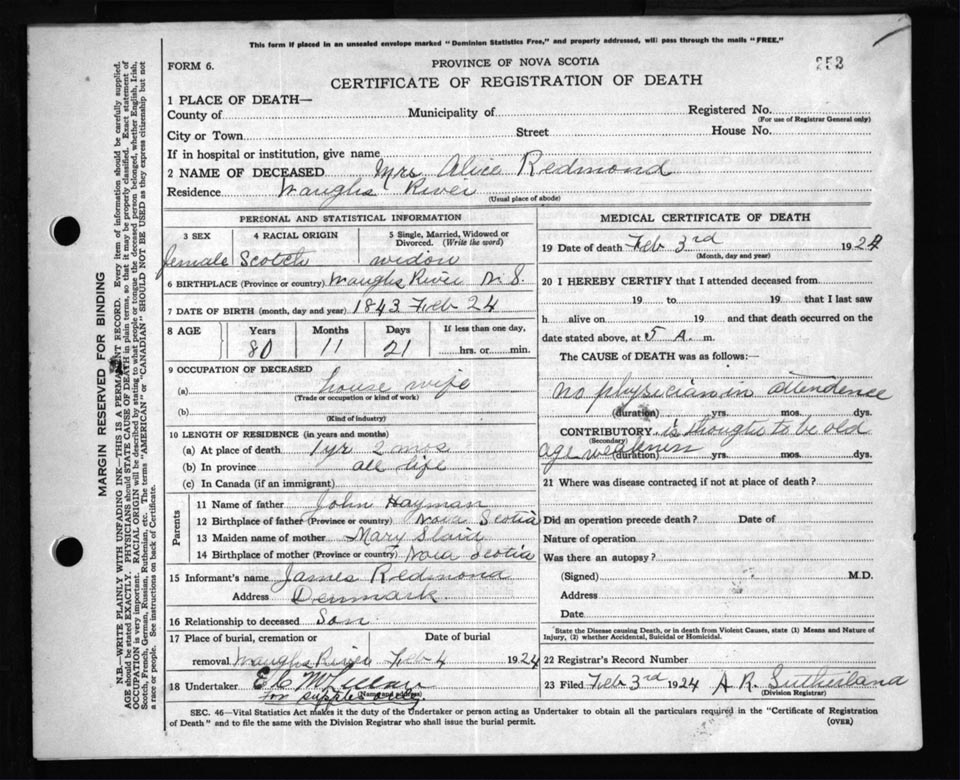 This form if placed in an unsealed envelope marked "Dominion Statistics Free," and properly addressed, will pass through the mails "FREE."
FORM 6.
PROVINCE OF NOVA SCOTIA
253
CERTIFICATE OF REGISTRATION OF DEATH
1 PLACE OF DEATH—
County of Municipality of Registered No.
(For use of Registrar General only)
City or Town Street House No.
If in hospital or institution, give name
2 NAME OF DECEASED Mrs Alice Redmond
Residence Waughs River
(Usual place of abode)
PERSONAL AND STATISTICAL INFORMATION
3 SEX 4 RACIAL ORIGIN 5 Single, Married, Widowed or Divorced. (Write the word)
female Scotch widow
6 BIRTHPLACE (Province or country) Waughs River N.S.
7 DATE OF BIRTH (month, day and year) 1843 Feb 24
8 AGE Years Months Days If less than one day,
80 11 21 hrs. or min.
9 OCCUPATION OF DECEASED
(a) house wife
(Trade or occupation or kind of work)
(b)
(Kind of industry)
10 LENGTH OF RESIDENCE (in years and months)
(a) At place of death 1 yr 2 mos
(b) In province all life
(c) In Canada (if an immigrant)
Parents
11 Name of father John Hayman
12 Birthplace of father (Province or country) Nova Scotia
13 Maiden name of mother Mary
14 Birthplace of mother (Province or country) Nova Scotia
15 Informant's name James Redmond
Address Denmark
16 Relationship to deceased Son
17 Place of burial, cremation or Date of burial
removal Waughs River Feb 4 1924
18 Undertaker
(Name and address)
MEDICAL CERTIFICATE OF DEATH
19 Date of death Feb 3rd 1924
(Month, day and year)
20 I HEREBY CERTIFY that I attended deceased from
19 to 19 that I last saw
h alive on 19 and that death occurred on the
date stated above, at 5 A. m.
The CAUSE OF DEATH was as follows:
no physician in attendence
(duration) yrs. mos. dys.
CONTRIBUTORY is thought to be old
(Secondary)
age weakness
(duration) yrs. mos. dys.
21 Where was disease contracted if not at place of death?
Did an operation precede death? Date of
Nature of operation
Was there an autopsy?
(Signed) M.D.
Address
Date
State the Disease causing Death, or in death from Violent Causes, state (1) Means and Nature of Injury, (2) whether Accidental, Suicidal or Homicidal.
22 Registrar's Record Number
23 Filed Feb 3rd 1924 A R. Sutherland
(Division Registrar)
SEC. 46—Vital Statistics Act makes it the duty of the Undertaker or person acting as Undertaker to obtain all the particulars required in the "Certificate of Registration
of Death" and to file the same with the Division Registrar who shall issue the burial permit.
(OVER)
MARGIN RESERVED FOR BINDING
N.B.—WRITE PLAINLY WITH UNFADING INK—THIS IS A PERMANENT RECORD. Every item of information should be carefully supplied.
AGE should be stated EXACTLY. PHYSICIANS should STATE CAUSE OF DEATH in plain terms, so that it may be properly classified. Exact statement of
OCCUPATION is very important. RACIAL ORIGIN will be described by stating to what people or tongue the deceased person belonged, whether English, Irish,
Scotch, French, German, Russian, Ruthenian, etc. The terms "AMERICAN" or "CANADIAN" SHOULD NOT BE USED as they express citizenship but not
a race or people. See instructions on back of Certificate.